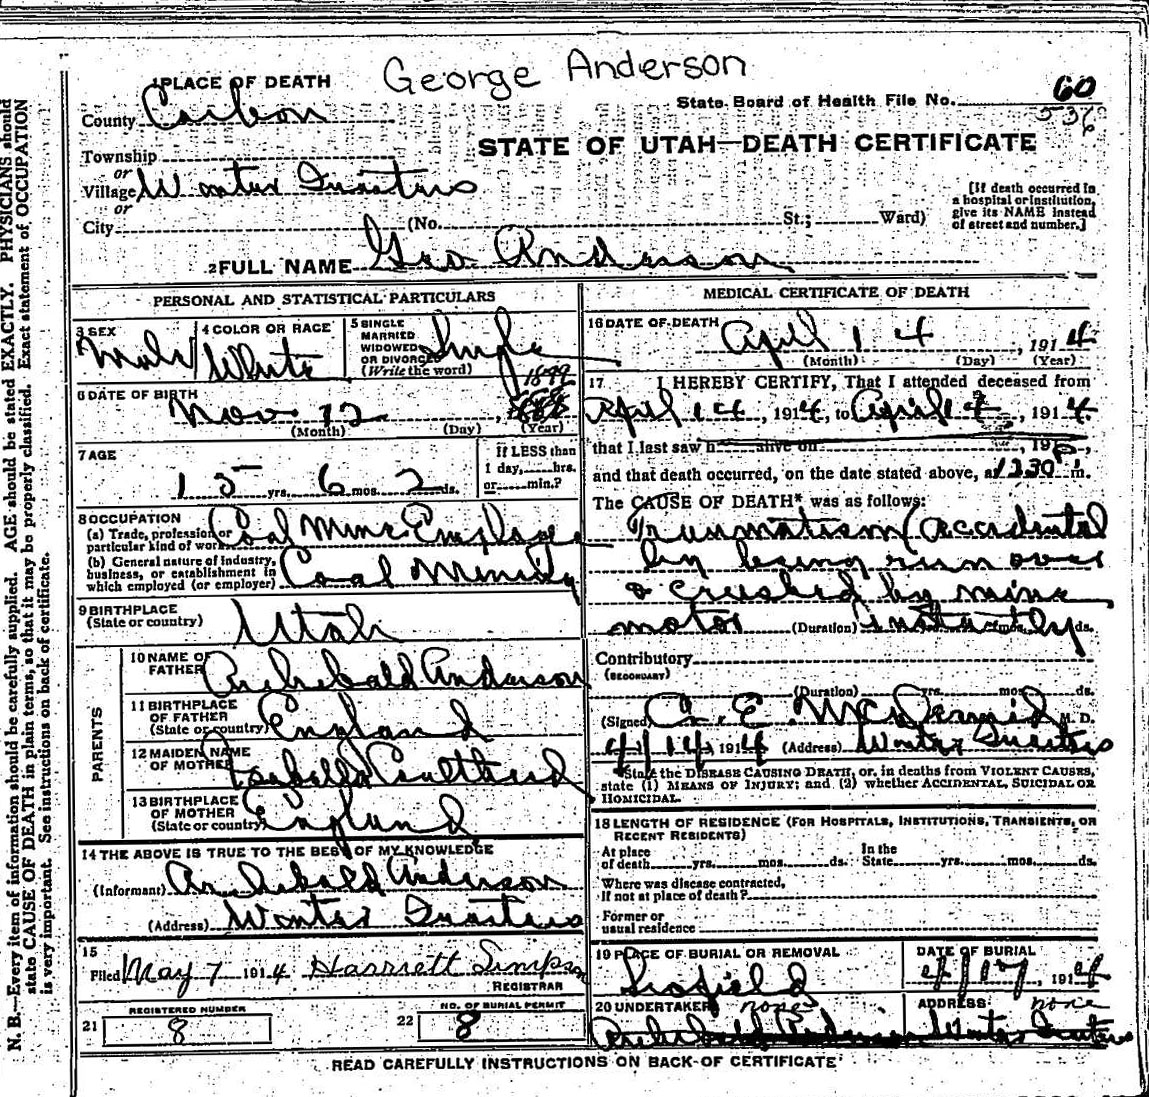 George Anderson
1 PLACE OF DEATH
State Board of Health File No. 60
536
County Carbon
STATE OF UTAH—DEATH CERTIFICATE
Township
or
Village Winter Quarters
or
City (No. St.; Ward)
[If death occurred in a hospital or institution, give its NAME instead of street and number.]
2 FULL NAME Geo Anderson
PERSONAL AND STATISTICAL PARTICULARS
3 SEX Male
4 COLOR OR RACE White
5 SINGLE MARRIED WIDOWED OR DIVORCED (Write the word) Single
6 DATE OF BIRTH Nov 12, 1899
(Month) (Day) (Year)
7 AGE 15 yrs. 6 mos. 2 ds.
If LESS than 1 day, hrs. or min.?
8 OCCUPATION
(a) Trade, profession or particular kind of work Coal Mine Employee
(b) General nature of industry, business, or establishment in which employed (or employer) Coal Mining
9 BIRTHPLACE (State or country) Utah
PARENTS
10 NAME OF FATHER Archibald Anderson
11 BIRTHPLACE OF FATHER (State or country) England
12 MAIDEN NAME OF MOTHER Isabella Coulthard
13 BIRTHPLACE OF MOTHER (State or country) England
14 THE ABOVE IS TRUE TO THE BEST OF MY KNOWLEDGE
(Informant) Archibald Anderson
(Address) Winter Quarters
15
Filed May 7 1914 Harriett Simpson
REGISTRAR
21 REGISTERED NUMBER 8
22 NO. OF BURIAL PERMIT 8
MEDICAL CERTIFICATE OF DEATH
16 DATE OF DEATH April 14, 1914
(Month) (Day) (Year)
17 I HEREBY CERTIFY, That I attended deceased from
April 14, 1914, to April 14, 1914.
that I last saw h alive on , 191
and that death occurred, on the date stated above, at 1230 m.
The CAUSE OF DEATH* was as follows:
Traumatism (accidental
by being run over
& crushed by mine
motor (Duration) instantly yrs. mos. ds.
Contributory
(SECONDARY)
(Duration) yrs. mos. ds.
(Signed) C. E. McDermid M. D.
4/14, 1914 (Address) Winter Quarters
*State the DISEASE CAUSING DEATH, or, in deaths from VIOLENT CAUSES,
state (1) MEANS OF INJURY; and (2) whether ACCIDENTAL, SUICIDAL OR
HOMICIDAL.
18 LENGTH OF RESIDENCE (FOR HOSPITALS, INSTITUTIONS, TRANSIENTS, OR
RECENT RESIDENTS)
At place of death yrs. mos. ds. In the State yrs. mos. ds.
Where was disease contracted,
If not at place of death?
Former or
usual residence
19 PLACE OF BURIAL OR REMOVAL Scofield
DATE OF BURIAL 4/17, 1914
20 UNDERTAKER none
ADDRESS none
Archibald Anderson Winter Quarters
READ CAREFULLY INSTRUCTIONS ON BACK OF CERTIFICATE
N. B.—Every item of information should be carefully supplied. AGE should be stated EXACTLY. PHYSICIANS should
state CAUSE OF DEATH in plain terms, so that it may be properly classified. Exact statement of OCCUPATION
is very important. See instructions on back of certificate.